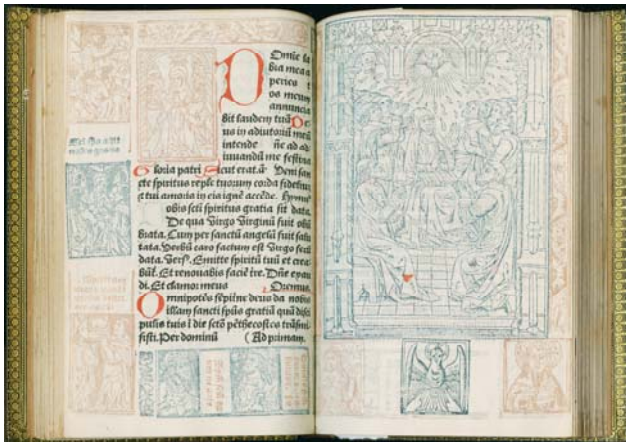 DOmīe la
bia mea a
peries t
os meum
annuncia
bit laudem tuā De
us in adiutoriū meū
intende ñe ad ad
iuuandū me festina
Gloria patri Sicut erat. ā Veni san
cte spiritus reple tuorum corda fideliū
et tui amoris in eis ignē accēde. Hymnꝰ
obis scti spiritus gratia sit data.
De qua virgo virginū fuit obū
brata. Cum per sanctū angelū fuit salu
tata. Verbū caro factum est virgo fecū
data. Versꝰ. Emitte spiritū tuū et crea
būt. Et renouabis faciē tre. Dñe exau
di. Et clamor meus Oremus.
Omnipotēs sēpitñe deus da nobis
illam sancti spūs gratiā quā disci
pulis tuis ī die sctō pēthecostes trāsmi
sisti. Per dominū (Ad primam.